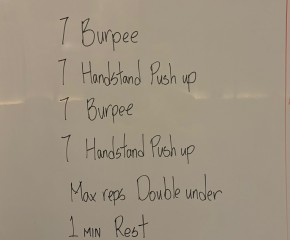 7 Burpee
7 Handstand Push up
7 Burpee
7 Handstand Push up
Max reps Double under
1 MIN Rest